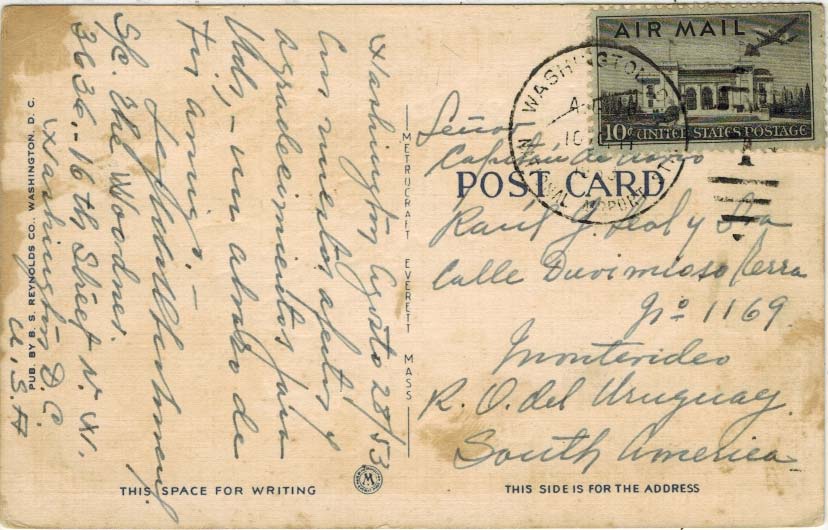 Washington Agosto 28/53
Con nuestros afectos y
agradecimientos para
Uds, – un abrazo de
tu amigo. –
S/c. The Woodner.
3636 - 16th Street N.W.
Washington D.C.
U.S.A
PUB. BY B. S. REYNOLDS CO., WASHINGTON, D. C.
METROCRAFT EVERETT MASS
THIS SPACE FOR WRITING
M
AIR MAIL
10¢ UNITED STATES POSTAGE
WASHINGTON
NATIONAL AIRPORT
POST CARD
Señor
Capitán de navio
Raúl y Sra
Calle
Nº 1169
Montevideo
R. O. del Uruguay.
South America
THIS SIDE IS FOR THE ADDRESS